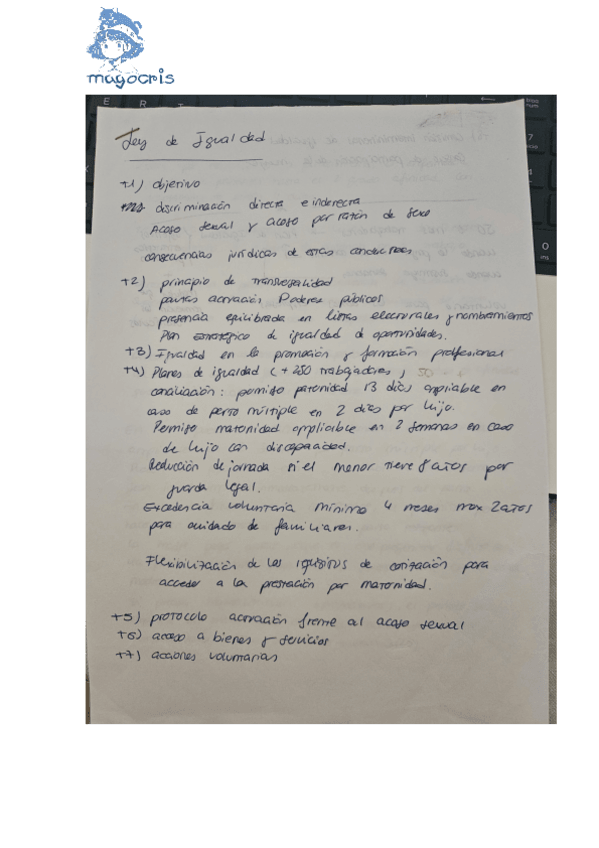 magocris
Ley de Igualdad
+1) objetivo
discriminación directa e inderecta
Acoso sexual y acoso por razón de sexo
consecuencias jurídicas de estas conductas
+2) principio de transversalidad
pautas actuación Poderes públicos
presencia equilibrada en listas electorales y nombramientos
Plan estratégico de igualdad de oportunidades.
+3) Igualdad en la promoción y formación profesional
+4) Planes de igualdad (+ 250 trabajadores) 50
conciliación: permiso paternidad 13 días ampliable en
caso de parto múltiple en 2 días por hijo.
Permiso maternidad ampliable en 2 semanas en caso
de hijo con discapacidad.
Reducción de jornada si el menor tiene 8 años por
guarda legal.
Excedencia voluntaria mínimo 4 meses max 2 años
para cuidado de familiares.
Flexibilización de los requisitos de cotización para
acceder a la prestación por maternidad.
+5) protocolo actuación frente al acoso sexual
+6) acceso a bienes y servicios
+7) acciones voluntarias